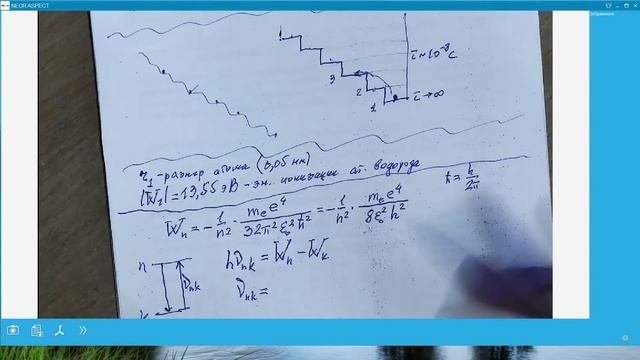 NEORASPECT
Избранное
τ ~ 10⁻⁸ с
3
2
1
τ → ∞
r₁ - размер атома (0,05 нм)
|W₁| = 13,55 эВ - эн. ионизации ат. водорода
ħ = h/2π
Wₙ = -1/n² · mₑe⁴/32π²ε₀²ħ² = -1/n² · mₑe⁴/8ε₀²h²
n
νₙₖ
hνₙₖ = Wₙ - Wₖ
νₙₖ =